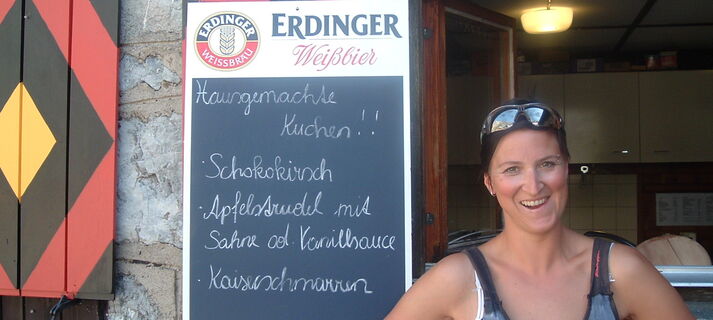 ERDINGER
WEISSBRÄU
ERDINGER
Weißbier
Hausgemachte
Kuchen!!
· Schokokirsch
· Apfelstrudel mit
Sahne od. Vanillsauce
· Kaiserschmarren